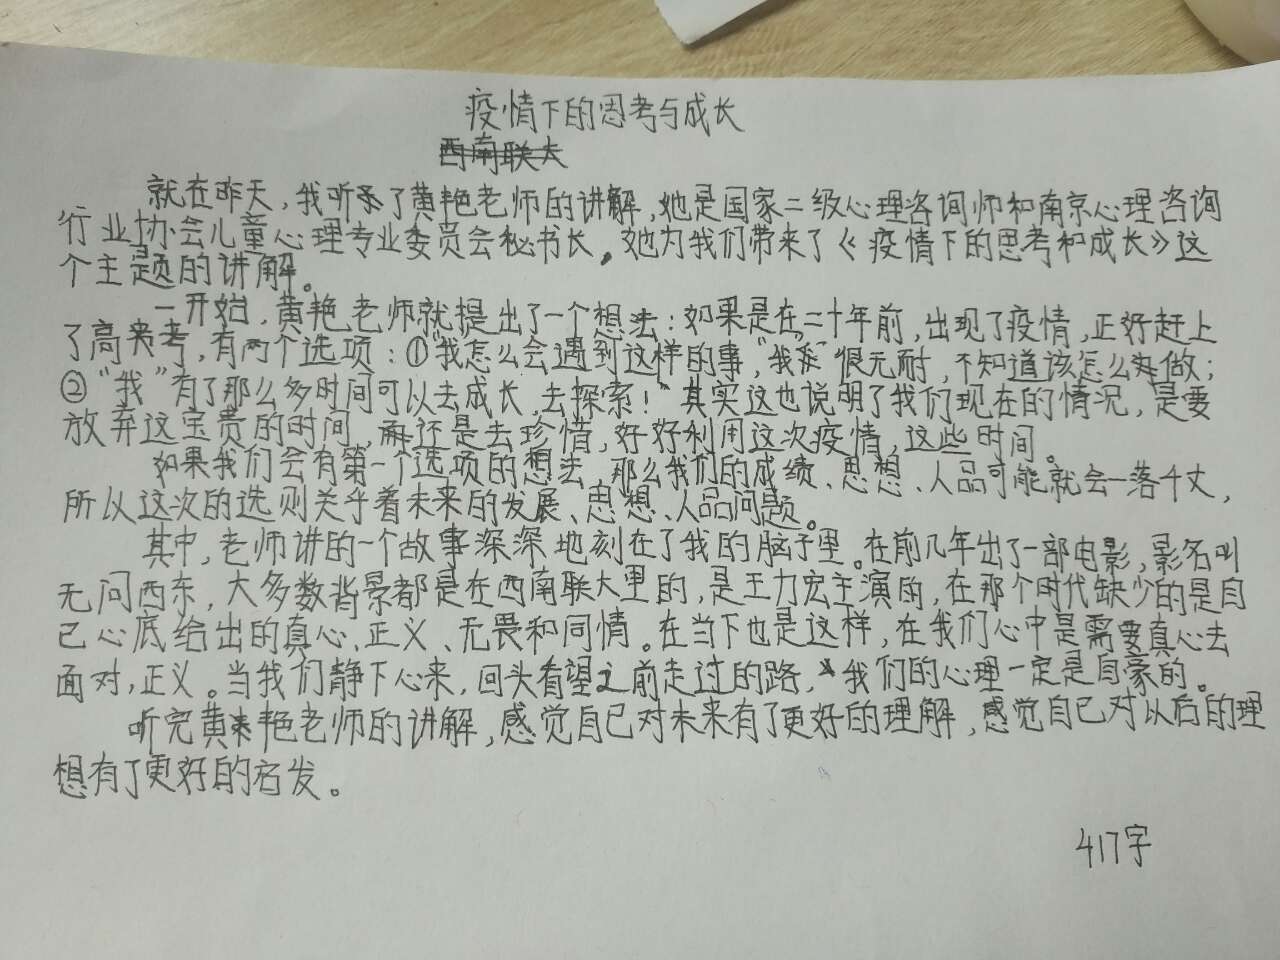 疫情下的思考与成长
西南联大
就在昨天，我听了黄艳老师的讲解，她是国家二级心理咨询师和南京心理咨询
行业协会儿童心理专业委员会秘书长，她为我们带来了《疫情下的思考和成长》这
个主题的讲解。
一开始，黄艳老师就提出了一个想法：如果是在二十年前，出现了疫情，正好赶上
了高考，有两个选项：①“我怎么会遇到这样的事，“我”很无耐，不知道该怎么做；
②“我”有了那么多时间可以去成长，去探索！”其实这也说明了我们现在的情况，是要
放弃这宝贵的时间，还是去珍惜，好好利用这次疫情，这些时间。
如果我们会有第一个选项的想法，那么我们的成绩、思想、人品可能就会一落千丈，
所以这次的选则关乎着未来的发展、思想、人品问题。
其中，老师讲的一个故事深深地刻在了我的脑子里。在前几年出了一部电影，影名叫
无问西东，大多数背景都是在西南联大里的，是王力宏主演的，在那个时代缺少的是自
己心底给出的真心、正义、无畏和同情。在当下也是这样，在我们心中是需要真心去
面对，正义。当我们静下心来，回头看望之前走过的路，我们的心理一定是自豪的。
听完黄艳老师的讲解，感觉自己对未来有了更好的理解，感觉自己对以后的理
想有了更好的启发。
417字